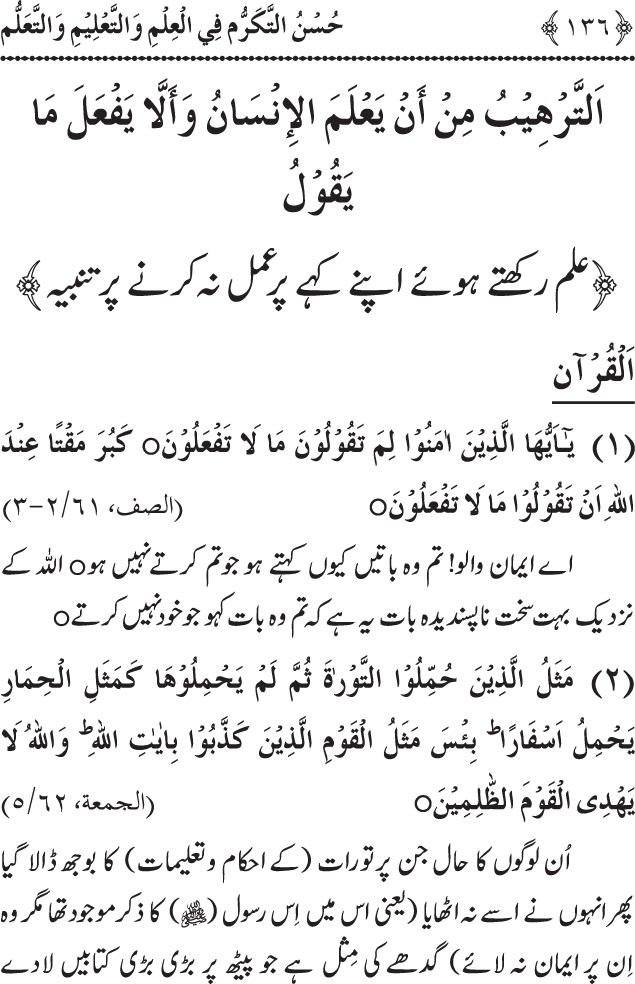 ﴿۱۳۶﴾ حُسْنُ التَّكَرُّم فِي الْعِلْمِ وَالتَّعْلِيْمِ وَالتَّعَلُّم
اَلتَّرْهِيْبُ مِنْ أَنْ يَعْلَمَ الإِنْسَانُ وَأَلَّا يَفْعَلَ مَا
يَقُوْلُ
﴿علم رکھتے ہوئے اپنے کہے پر عمل نہ کرنے پر تنبیہ﴾
اَلْقُرْآن
(۱) يٰٓاَيُّهَا الَّذِيْنَ اٰمَنُوْا لِمَ تَقُوْلُوْنَ مَا لَا تَفْعَلُوْنَ○ كَبُرَ مَقْتًا عِنْدَ
اللهِ اَنْ تَقُوْلُوْا مَا لَا تَفْعَلُوْنَ○ (الصف، ۶۱/۲-۳)
اے ایمان والو! تم وہ باتیں کیوں کہتے ہو جو تم کرتے نہیں ہو○ اللہ کے
نزدیک بہت سخت ناپسندیدہ بات یہ ہے کہ تم وہ بات کہو جو خود نہیں کرتے○
(۲) مَثَلُ الَّذِيْنَ حُمِّلُوا التَّوْرٰةَ ثُمَّ لَمْ يَحْمِلُوْهَا كَمَثَلِ الْحِمَارِ
يَحْمِلُ اَسْفَارًا ؕ بِئْسَ مَثَلُ الْقَوْمِ الَّذِيْنَ كَذَّبُوْا بِاٰيٰتِ اللهِ ؕ وَاللهُ لَا
يَهْدِى الْقَوْمَ الظّٰلِمِيْنَ○ (الجمعة، ۶۲/۵)
اُن لوگوں کا حال جن پر تورات (کے احکام و تعلیمات) کا بوجھ ڈالا گیا
پھر انہوں نے اسے نہ اٹھایا (یعنی اس میں اِس رسول (ﷺ) کا ذکر موجود تھا مگر وہ
اِن پر ایمان نہ لائے) گدھے کی مِثل ہے جو پیٹھ پر بڑی بڑی کتابیں لادے